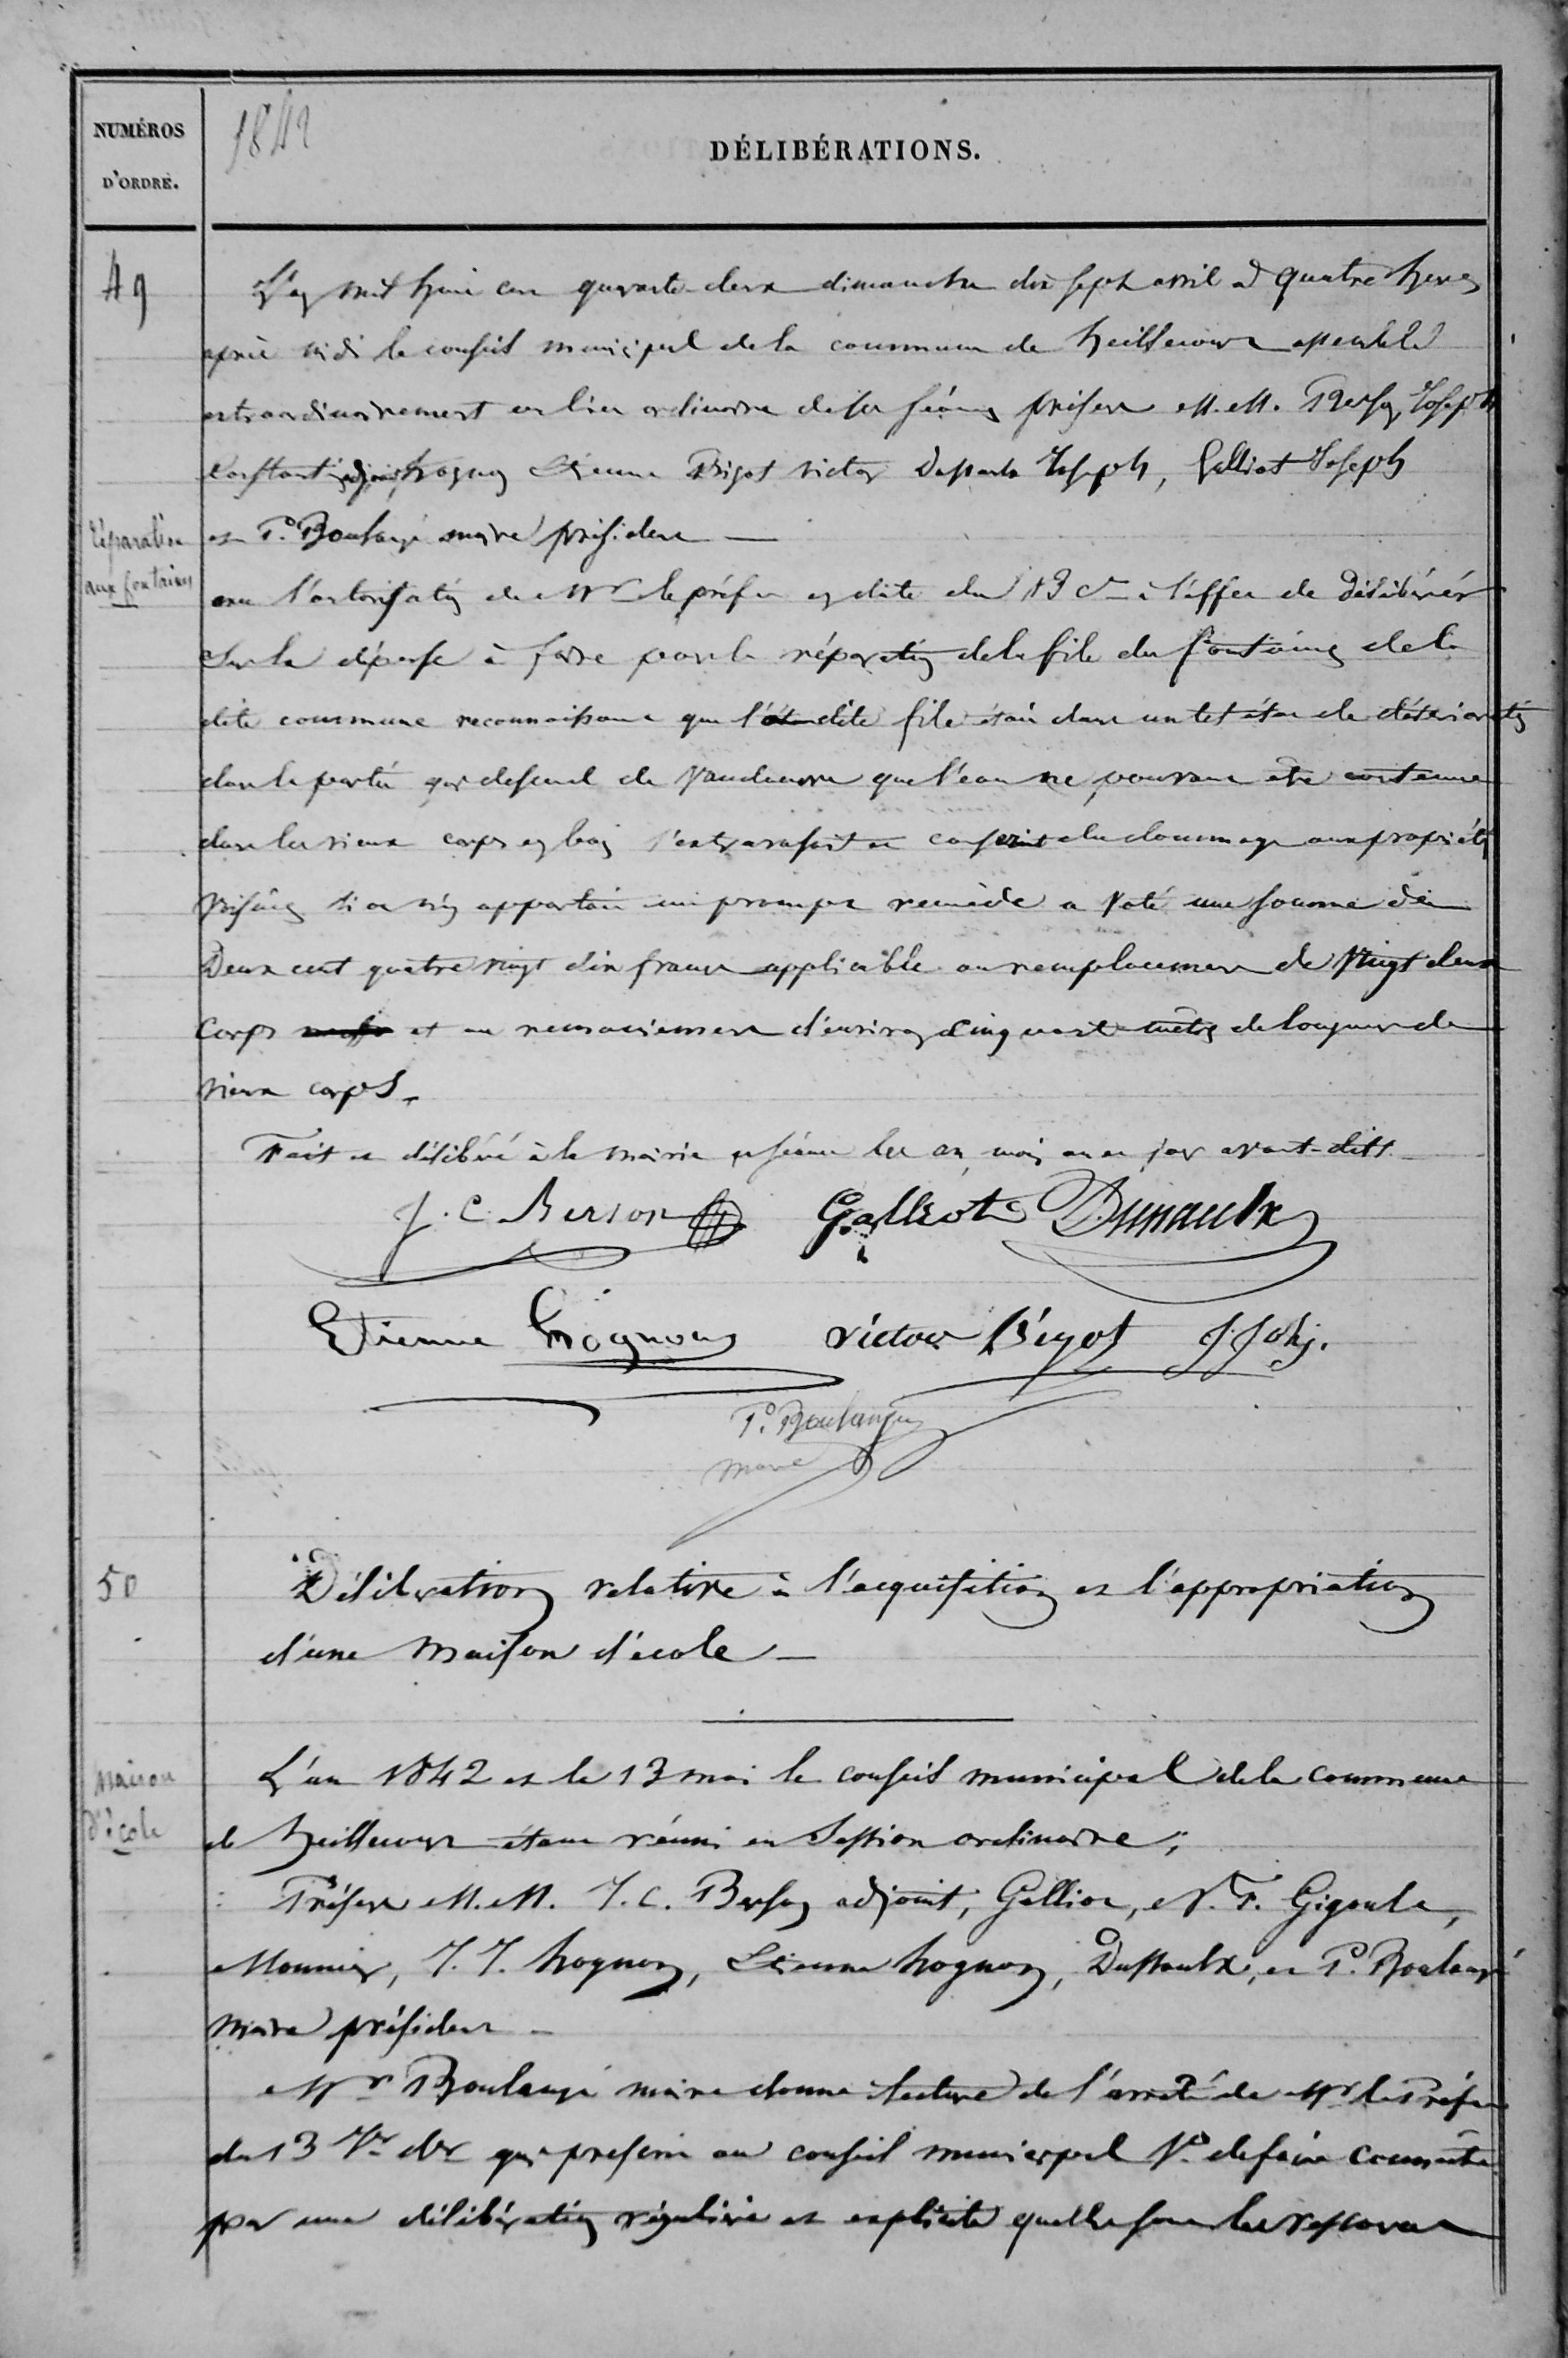 NUMÉROS
D'ORDRE.
1842
DÉLIBÉRATIONS.
49
L'an mil huit cent quarante deux dimanche dix sept avril à quatre heures
après midi le conseil municipal de la commune de heillecourt assemblé
extraordinairement au lieu ordinaire de ses séances présens M.M. Berson Joseph
Constant adjoint, hognon Etienne Bigot victor Joseph, Galliot Joseph
et P. Boulangé maire président
réparation
aux fontaines
vu l'autorisation de Mr le préfet en date du 13 Ct à l'effet de délibérer
sur la dépense à faire pour la réparation de la file des fontaines de la
dite commune reconnaissant que la dite file était dans un tel état de détérioration
dans la partie qui descend de Vandeuvre que l'eau ne pouvant être contenue
dans les vieux corps en bois du dommage aux propriétés
voisines si on n'y apportait un prompt remède a voté une somme de
Deux cent quatre vingt dix francs applicable au remplacement de Vingt deux
Corps et au d'environ cinquante mètres de longueur de
vieux corps.
Fait et délibéré à la mairie en séance les an, mois et jour avant-dits
J. C. Berson Galliot Dussaulx
Etienne hognon victor Bigot J. J.
P. Boulangé
maire
50
Délibération relative à l'acquisition et l'appropriation
d'une maison d'école
maison
d'école
L'an 1842 et le 13 mai le conseil municipal de la commune
de heillecourt étant réuni en Session ordinaire;
Présens M.M. J. C. Berson adjoint, Galliot, N. F. Gigoute,
Monnier, J. J. hognon, Etienne hognon, Dussaulx, et P. Boulangé
maire président
Mr Boulangé maire donne lecture de l'arrêté de Mr le Préfet
du 13 qui prescrit au conseil municipal 1o de faire connaître
par une délibération régulière et explicite quelles sont les ressources